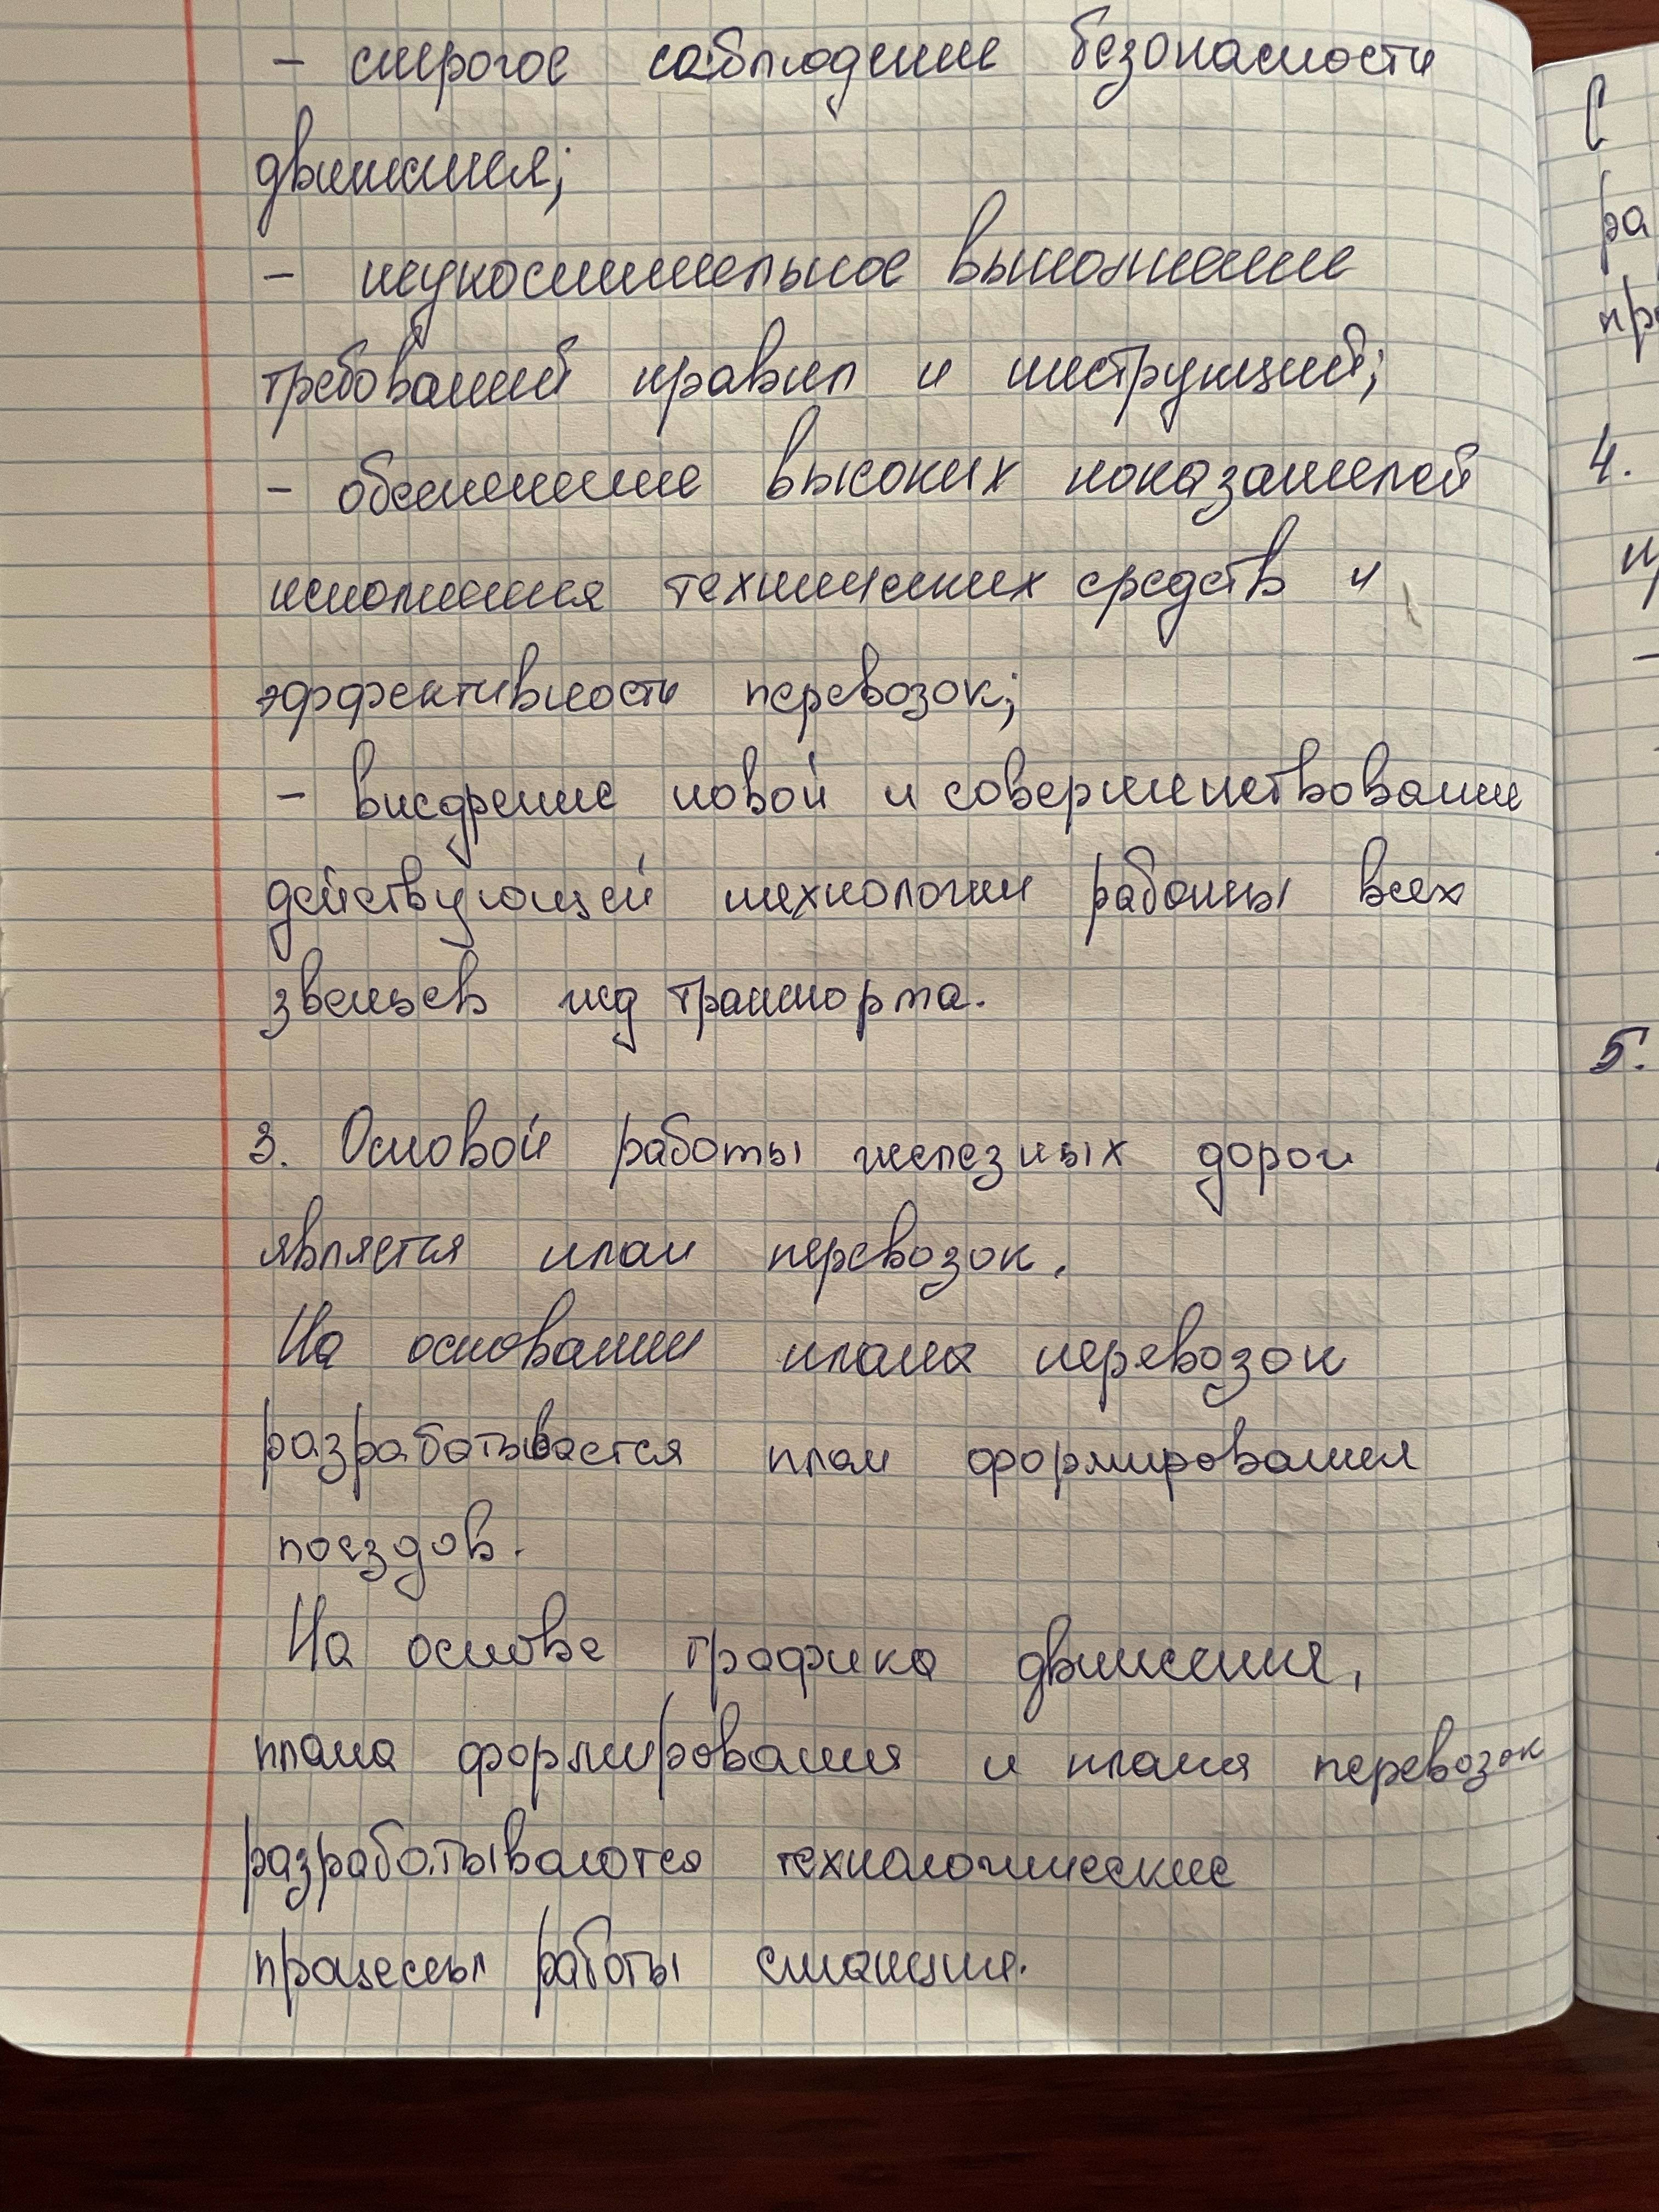 - строгое соблюдение безопасности
движения;
- неукоснительное выполнение
требований правил и инструкций;
- обеспечение высоких показателей
исполнения технических средств и
эффективность перевозок;
- внедрение новой и совершенствование
действующей технологии работы всех
звеньев жд транспорта.
3. Основой работы железных дорог
является план перевозок.
На основании плана перевозок
разрабатывается план формирования
поездов.
На основе графика движения,
плана формирования и плана перевозок
разрабатываются технологические
процессы работы станции.
ра
4.
5.